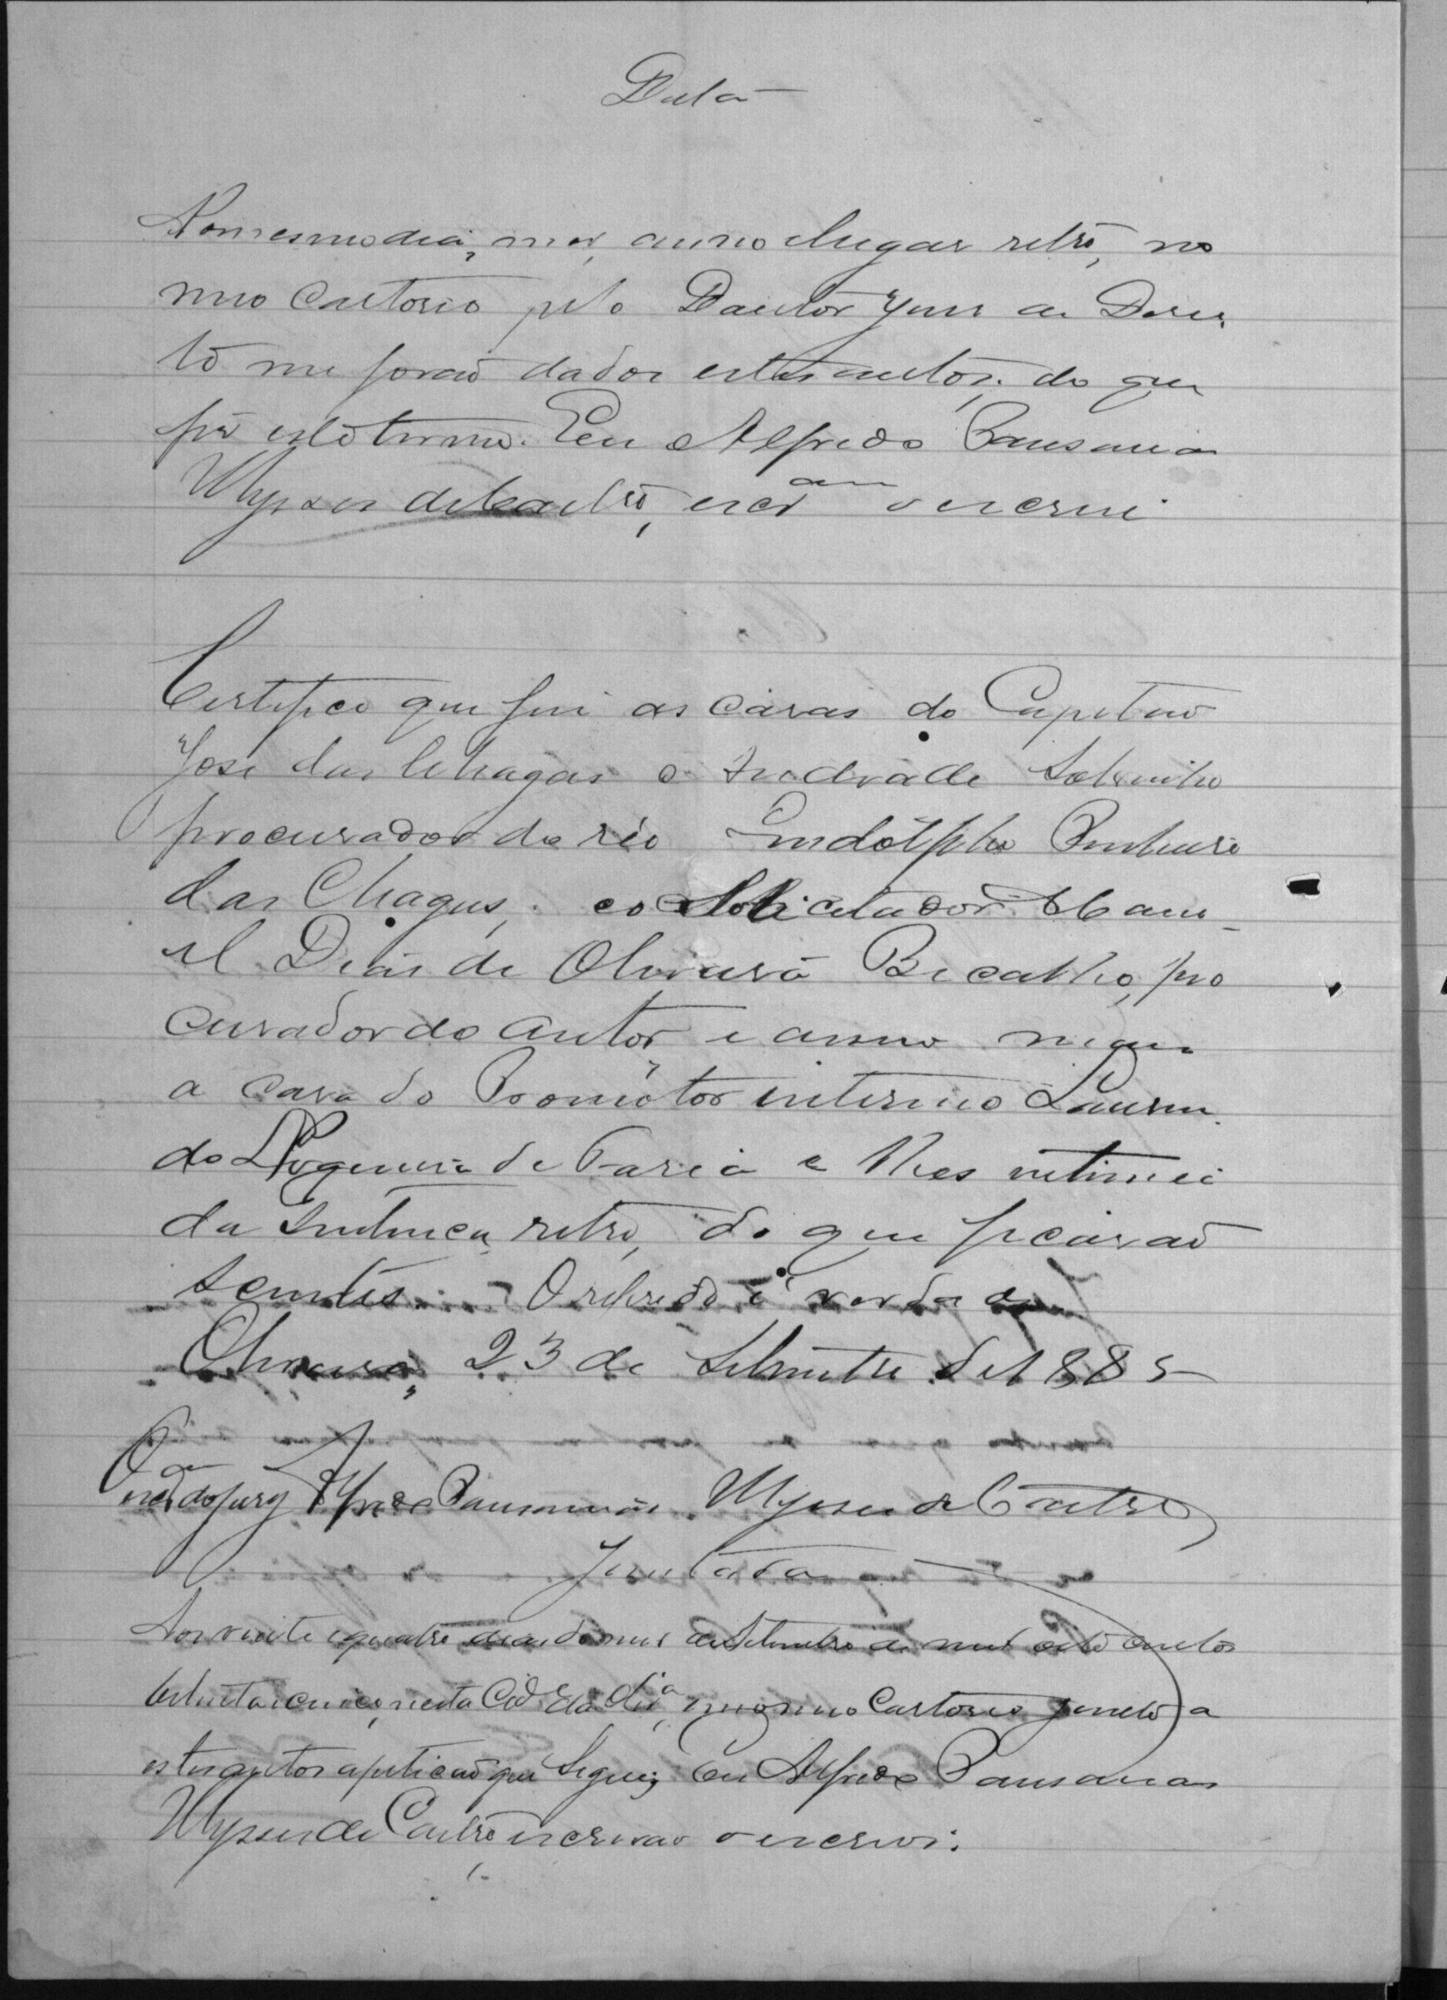 Data
No mesmo dia, mez, anno e lugar retro, no
meo Cartorio pelo Doutor Juiz de Direi
to me forão dados estes autos; do que
fiz este termo. Eu Alfredo Pausanias
Ulysses de Castro, escr.am o escrevi
Certifico que fui as casas do Capitão
José das Chagas e Andrade Sobrinho
procurador do réo Lindolpho Pinheiro
das Chagas, e o Sollicitador Mano-
el Dias de Oliveira Bicalho, pro
curador do autor e assim
a casa do Promotor interino Laurin
do Nogueira de Faria e lhes intimei
da Sentença retro, do que ficarão
scientes. O referido é verdade
Oliveira, 23 de Setembro de 1885
O escr.am do jury Alfredo Pausanias Ulysses de Castro
Juntada
Aos vinte e quatro dias do mez de Setembro de mil oito centos
oitenta e cinco, nesta Cid.e da Oliv.a, em o meo Cartorio junto a
estes autos a petição que segue; eu Alfredo Pausanias
Ulysses de Castro escrivão o escrevi.